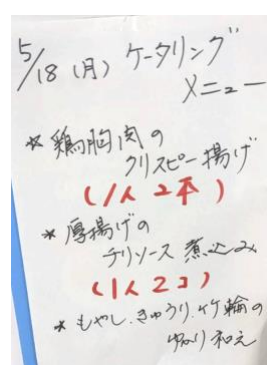 5/18(月) ケータリング
メニュー
*鶏胸肉の
クリスピー揚げ
(1人2本)
*厚揚げの
チリソース煮込み
(1人2コ)
*もやし、きゅうり、竹輪の
ゆかり和え